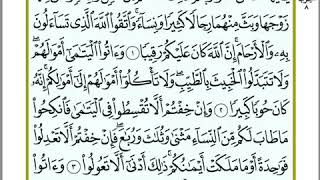 زَوْجَهَا وَبَثَّ مِنْهُمَا رِجَالًا كَثِيرًا وَنِسَآءً وَاتَّقُوا۟ اللَّهَ الَّذِى تَسَّآءَلُونَ
بِهِۦ وَالْأَرْحَامَ إِنَّ اللَّهَ كَانَ عَلَيْكُمْ رَقِيبًا ١ وَءَاتُوا۟ الْيَتَٰمَىٰ أَمْوَٰلَهُمْ
وَلَا تَتَبَدَّلُوا۟ الْخَبِيثَ بِالطَّيِّبِ وَلَا تَأْكُلُوٓا۟ أَمْوَٰلَهُمْ إِلَىٰٓ أَمْوَٰلِكُمْ إِنَّهُۥ
كَانَ حُوبًا كَبِيرًا ٢ وَإِنْ خِفْتُمْ أَلَّا تُقْسِطُوا۟ فِى الْيَتَٰمَىٰ فَانكِحُوا۟
مَا طَابَ لَكُم مِّنَ النِّسَآءِ مَثْنَىٰ وَثُلَٰثَ وَرُبَٰعَ فَإِنْ خِفْتُمْ أَلَّا تَعْدِلُوا۟
فَوَٰحِدَةً أَوْ مَا مَلَكَتْ أَيْمَٰنُكُمْ ذَٰلِكَ أَدْنَىٰٓ أَلَّا تَعُولُوا۟ ٣ وَءَاتُوا۟